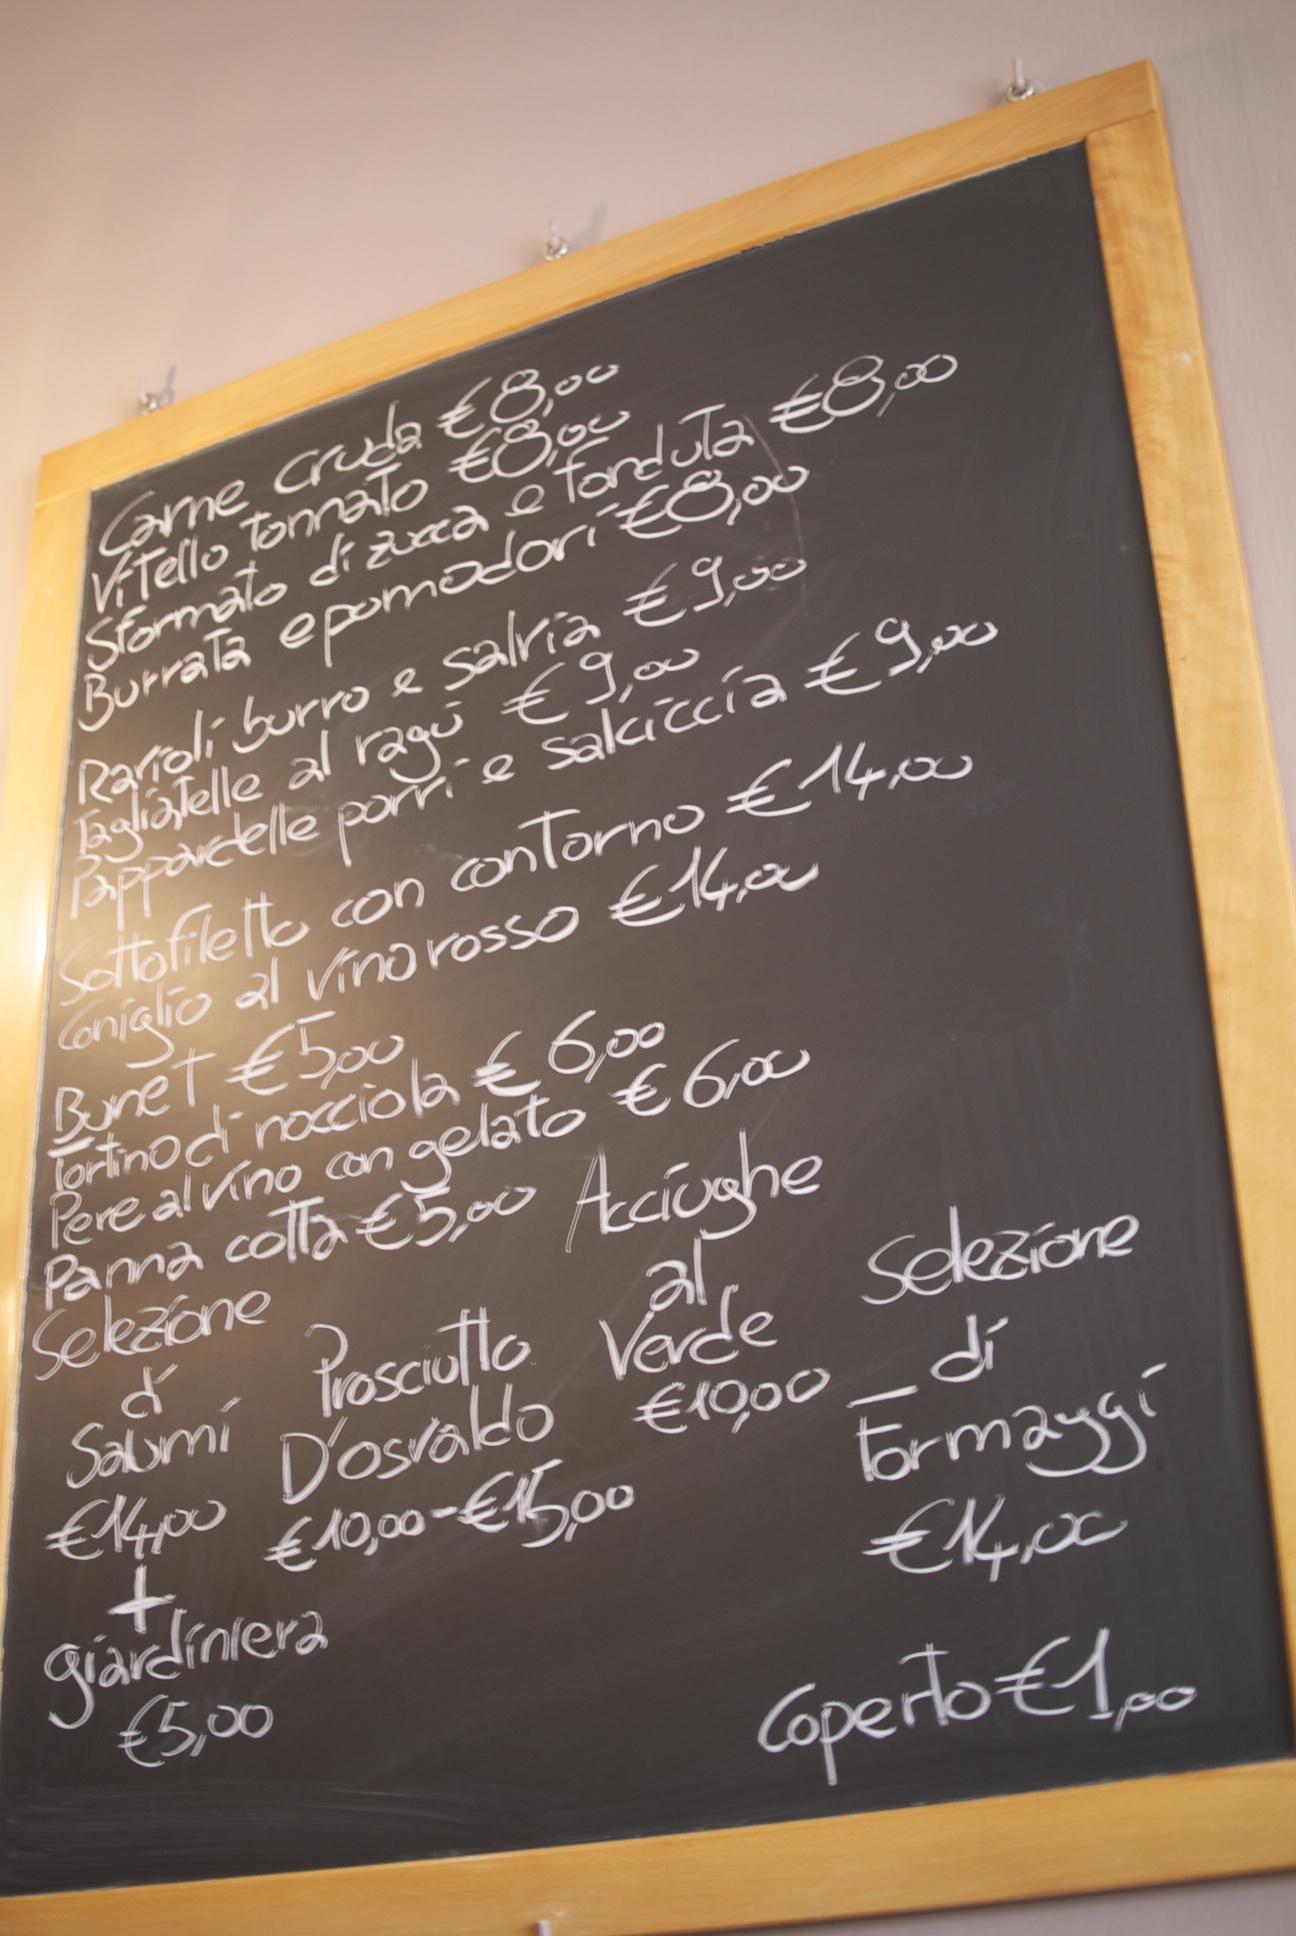 Carne cruda €8,00
Vitello tonnato €8,00
Sformato di zucca e fonduta €8,00
Burrata e pomodori €8,00
Ravioli burro e salvia €9,00
Tagliatelle al ragù €9,00
Pappardelle porri e salciccia €9,00
Sottofiletto con contorno €14,00
Coniglio al vino rosso €14,00
Bunet €5,00
Tortino di nocciola €6,00
Pere al vino con gelato €6,00
Panna cotta €5,00
Selezione
di
Salumi
€14,00
+
giardiniera
€5,00
Prosciutto
D'osvaldo
€10,00-€15,00
Acciughe
al
Verde
€10,00
Selezione
di
Formaggi
€14,00
Coperto €1,00